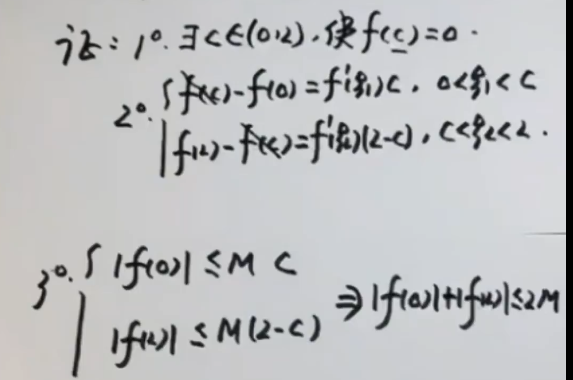 证：1°. ∃c∈(0,2), 使f(c)=0.
2°. { f(c)-f(0)=f'(ξ₁)c, 0<ξ₁<c
f(2)-f(c)=f'(ξ₂)(2-c), c<ξ₂<2.
3°. { |f(0)|≤M c
|f(2)|≤M(2-c) ⇒|f(0)|+|f(2)|≤2M